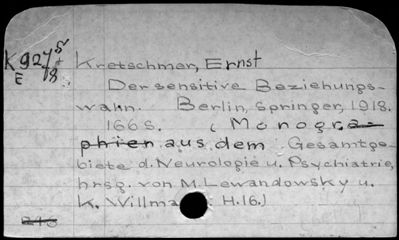 K 927 s
E 18
Kretschmer, Ernst
Der sensitive Beziehungs-
wahn. Berlin, Springer, 1918.
166 S. (Monogra-
phien aus dem Gesamtge-
biete d. Neurologie u. Psychiatrie,
hrsg. von M. Lewandowsky u.
K. Willma : H.16.)